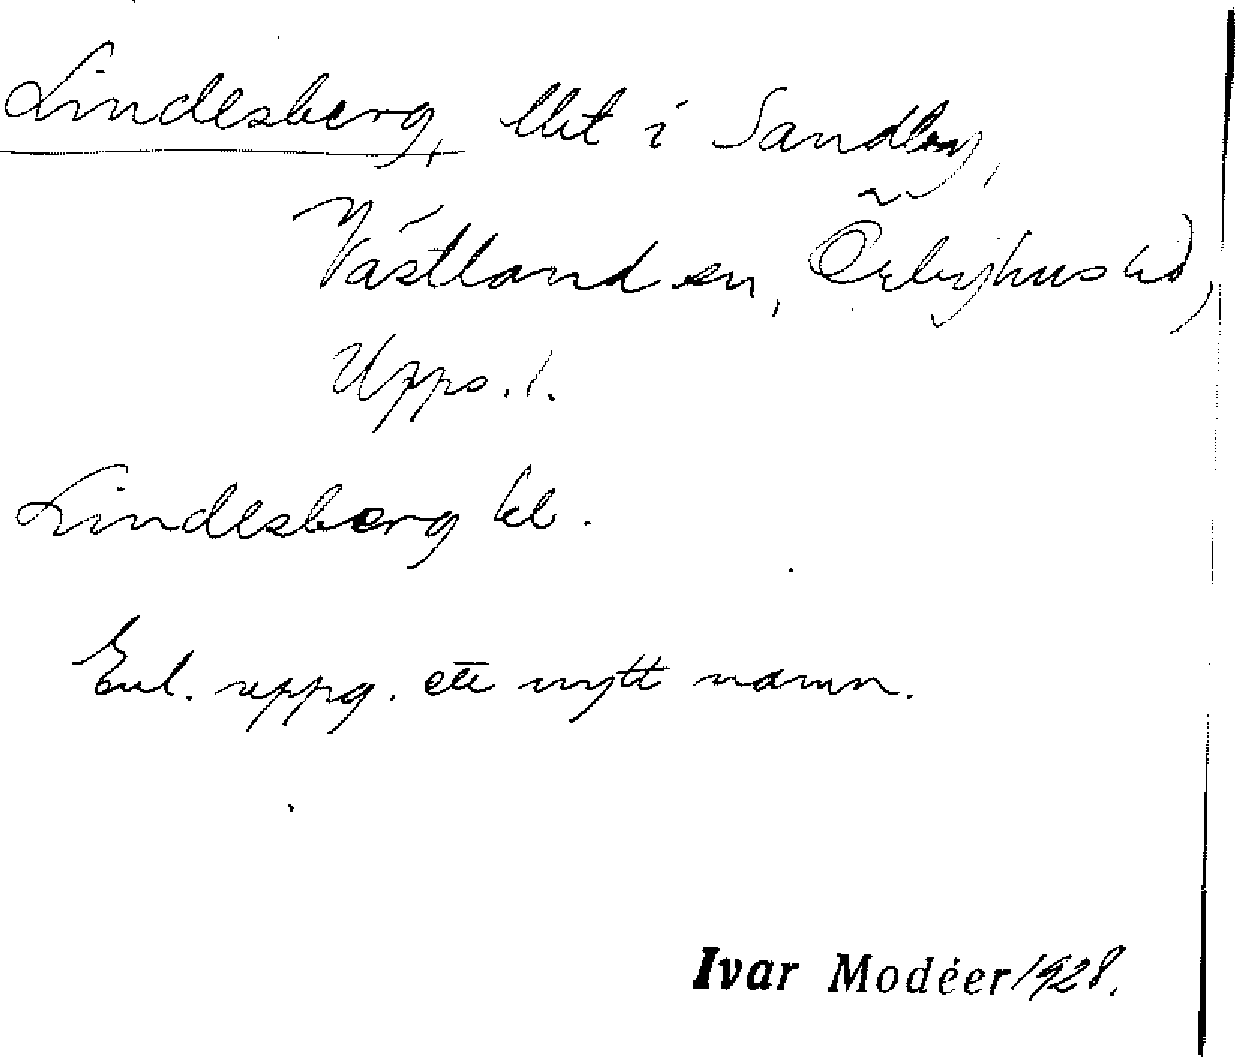 Lindesberg, lht i Sandby,
Västland sn, Örbyhus hd,
Upps. l.
Lindesberg kb.
Enl. uppg. ett nytt namn.
Ivar Modéer 1928.